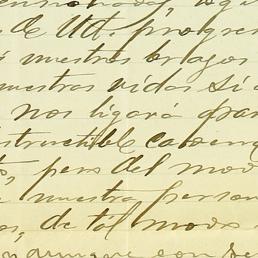 de Ud. progre
nuestros brazos
nuestras vidas si a
nos ligará para
structible cadena
pero del mod
nuestra person
de tal modo
aunque con se